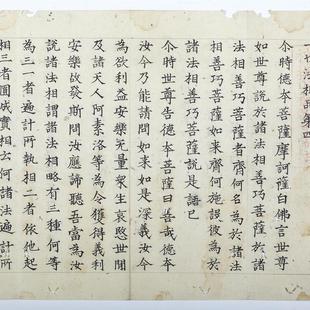 一切法相品第四
尒時德本菩薩摩訶薩白佛言世尊
如世尊說於諸法相善巧菩薩於諸
法相善巧菩薩者齊何名為於諸法
相善巧菩薩如來齊何施設彼為於
諸法相善巧菩薩說是語已
尒時世尊告德本菩薩曰善哉德本
汝今乃能請問如来如是深義汝今
為欲利益安樂无量衆生哀愍世間
及諸天人阿素洛等為令獲得義利
安樂故發斯問汝應諦聽吾當為汝
說諸法相謂諸法相略有三種何等
為三一者遍計所執相二者依他起
相三者圓成實相云何諸法遍計所